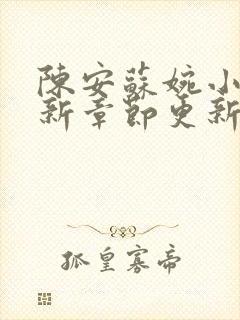 陳安蘇婉小
新章節更新
孤皇寡帝